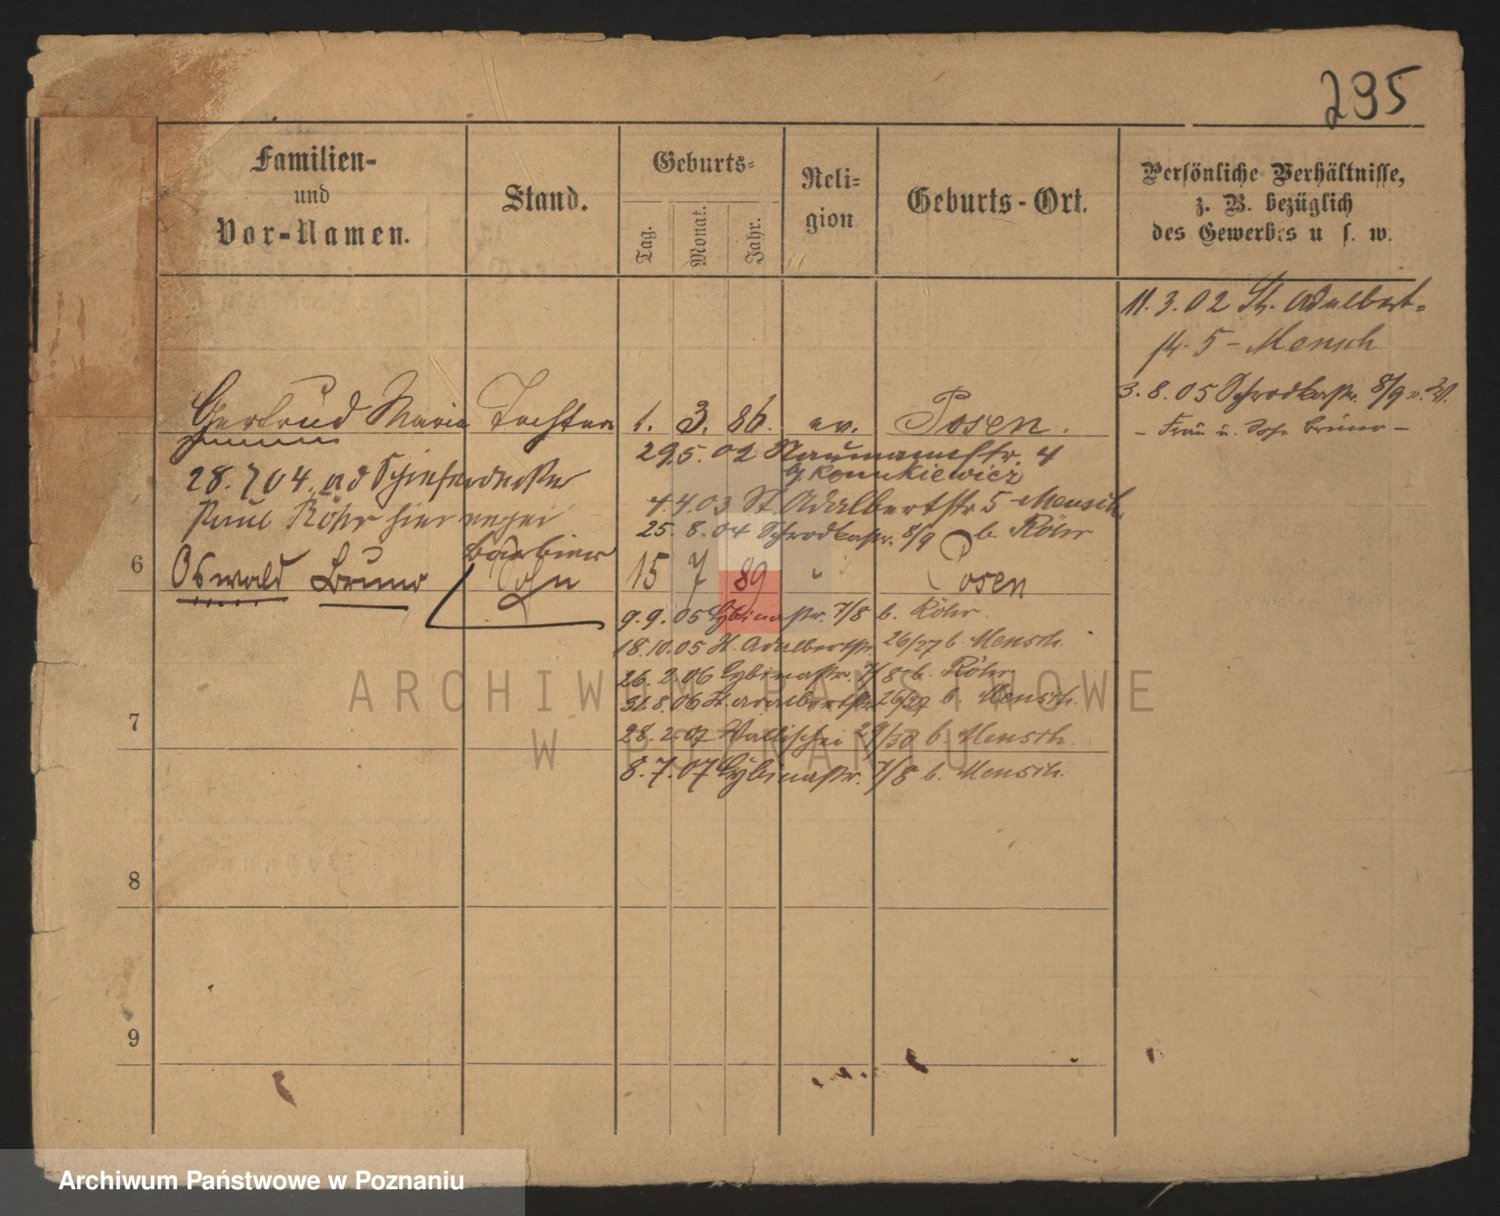 295
Familien-
und
Vor-Namen.
Stand.
Geburts-
Tag.
Monat.
Jahr.
Reli-
gion
Geburts-Ort.
Persönliche Verhältnisse,
z. B. bezüglich
des Gewerbes u s. w.
11.3.02 St. Adalbert-
14.5 - Mensch
3.8.05 Schrodkastr. 8/9 v. W.
- Frau u. Sohn Bruno -
Gertrud Maria Tochter 1. 3. 86. ev. Posen.
29.5.02 Naumannstr. 4
28.7.04 ad Schieferdecker
4.4.03 St. Adalbertstr 5 Mensch
Paul Röhr hier
25.8.04 Schrodkastr. 8/9 b. Röhr
Barbier
6 Oswald Bruno Sohn 15 7 89 " Posen
9.9.05 Cybinastr. 7/8 b. Röhr.
18.10.05 St. Adalbertstr. 26/27 b Mensch.
26.2.06 Cybinastr. 7/8 b. Röhr
31.8.06 St. Adalbertstr 26/27 b Mensch.
7
28.2.07 Wallischei 29/30 b Mensch.
8.7.07 Cybinastr. 7/8 b. Mensch.
8
9
ARCHIWUM PAŃSTWOWE
W POZNANIU
Archiwum Państwowe w Poznaniu